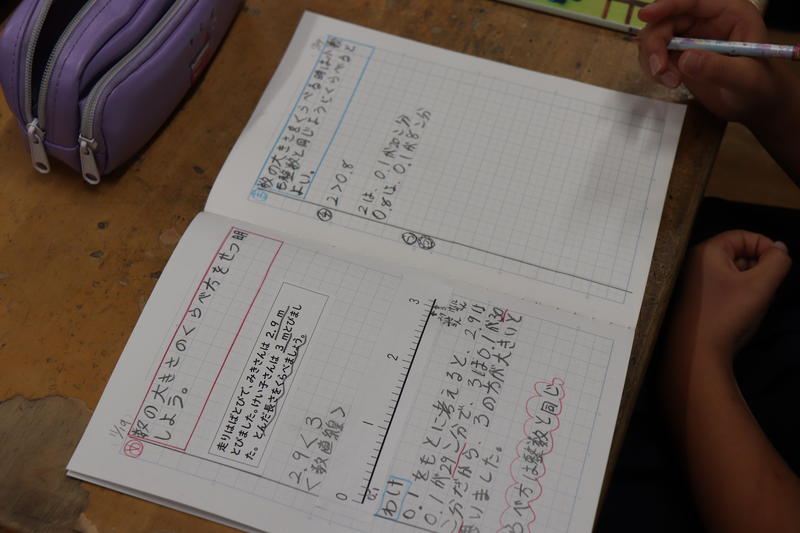 11/19
め 数の大きさのくらべ方をせつ明
しよう。
走りはばとびで、みきさんは 2.9 m
とびました。けい子さんは 3 mとびまし
た。とんだ長さをくらべましょう。
2.9<3
<数直線>
0 1 2 3
0.1
わけ
0.1をもとに考えると、2.9は
0.1が29こ分で、3は0.1が30
こ分だから、3の方が大きいと
思いました。
くらべ方は整数と同じ。
数の大きさをくらべる時は小数
も整数と同じようにくらべると
よい。
2>0.8
2は、0.1が20こ分
0.8は、0.1が8こ分